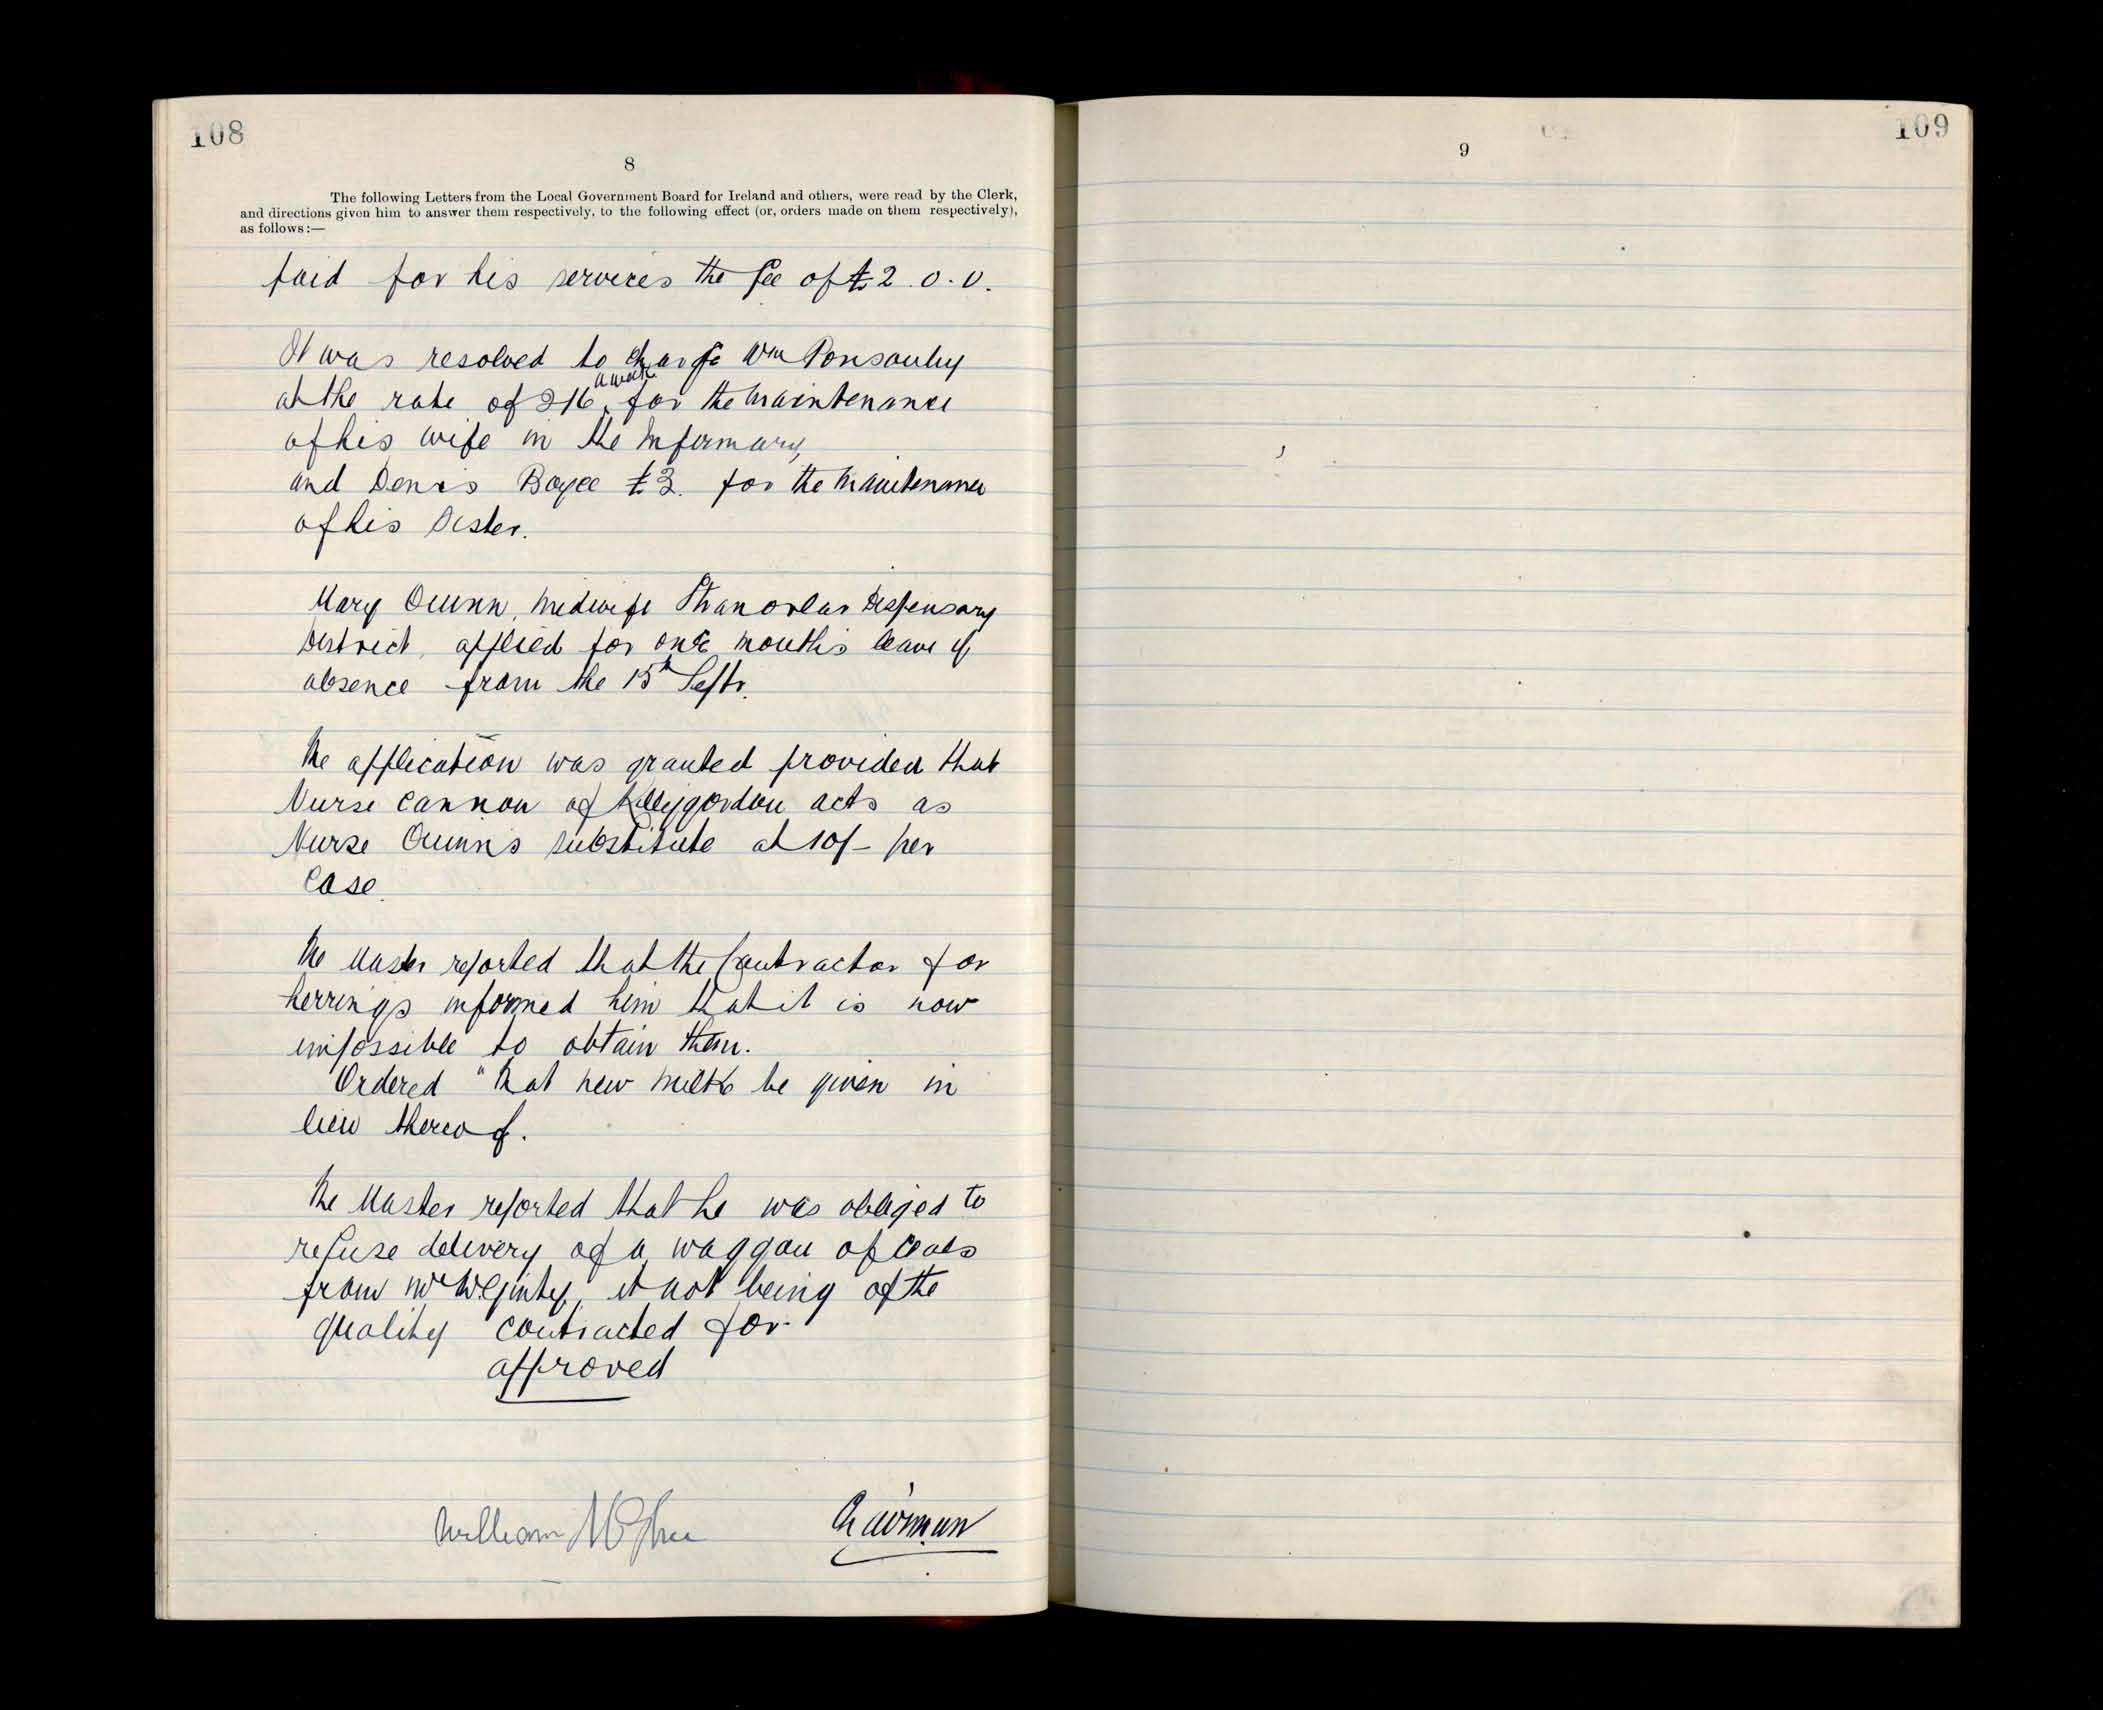 108
8
The following Letters from the Local Government Board for Ireland and others, were read by the Clerk,
and directions given him to answer them respectively, to the following effect (or, orders made on them respectively),
as follows:—
paid for his services the fee of £2.0.0.
It was resolved to charge Wm Ponsonby
at the rate of 2/6 a week for the maintenance
of his wife in the Infirmary,
and Denis Boyce £3. for the maintenance
of his Sister.
Mary Quinn, Midwife Stranorlar Dispensary
District, applied for one months leave of
absence from the 15th Septr.
The application was granted provided that
Nurse Cannon of Killygordon acts as
Nurse Quinn's substitute at 10/- per
Case.
The Master reported that the Contractor for
herrings informed him that it is now
impossible to obtain them.
Ordered "That new milk be given in
lieu thereof.
The Master reported that he was obliged to
refuse delivery of a waggon of coals
from Mr McGinty, it not being of the
quality contracted for
approved
William
Chairman
109
9